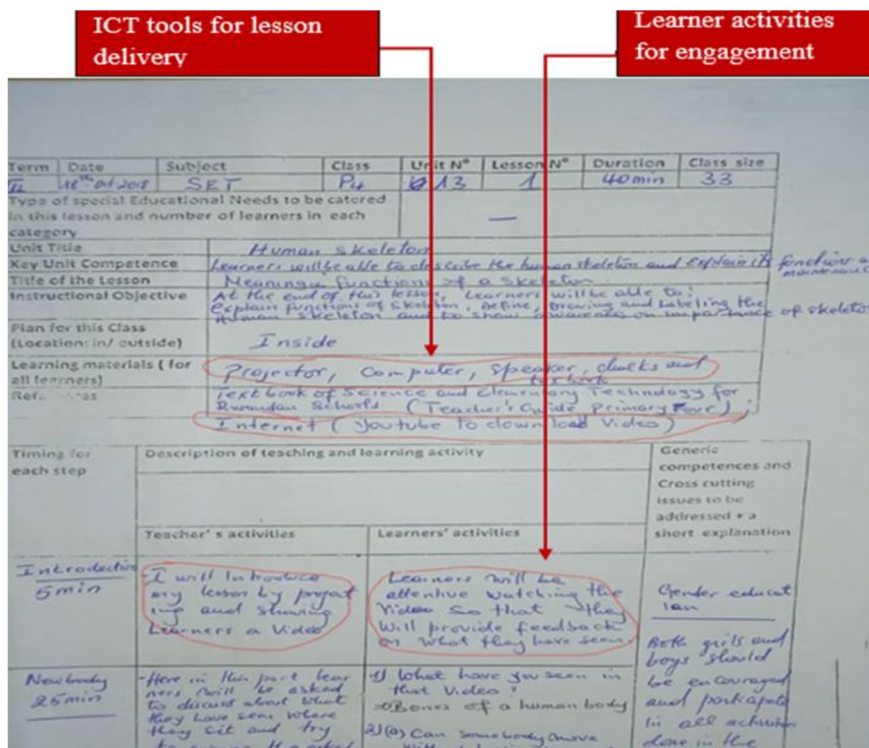 ICT tools for lesson
delivery
Learner activities
for engagement
Term Date Subject Class Unit N° Lesson N° Duration Class size
II 18th 2018 SET P4 13 1 40min 33
Type of special Educational Needs to be catered
in this lesson and number of learners in each
category
—
Unit Title Human skeleton
Key Unit Competence Learners will be able to describe the human skeleton and Explain its function
Title of the Lesson functions of a skeleton
Instructional Objective At the end of this lesson, Learners will be able to:
Explain functions of skeleton, Define, Drawing and Labeling the
Human skeleton and to show awareness on importance of skeleton
Plan for this Class
(Location: in/ outside) Inside
Learning materials ( for
all learners) Projector, Computer, Speaker, chalks and
textbook
Textbook of Science and Elementary Technology for
Rwandan Schools (Teacher's Guide Primary Four) ;
Internet (Youtube to download Video)
Timing for
each step
Description of teaching and learning activity
Generic
competences and
Cross cutting
issues to be
addressed + a
short explanation
Teacher's activities Learners' activities
Introduction
5min
-I will Introduce
my lesson by project
ing and showing
Learners a Video
Learners will be
attentive watching the
Video so that they
will provide feedback
on what they have seen
Gender educat
ion
Both girls and
boys should
be encouraged
and participate
in all activities
done in the
New body
25min
-Here in this part lear
ners will be asked
to discuss about what
they have seen where
they sit and try
1) What have you seen in
that Video?
Bones of a human body
2) (a) Can somebody move